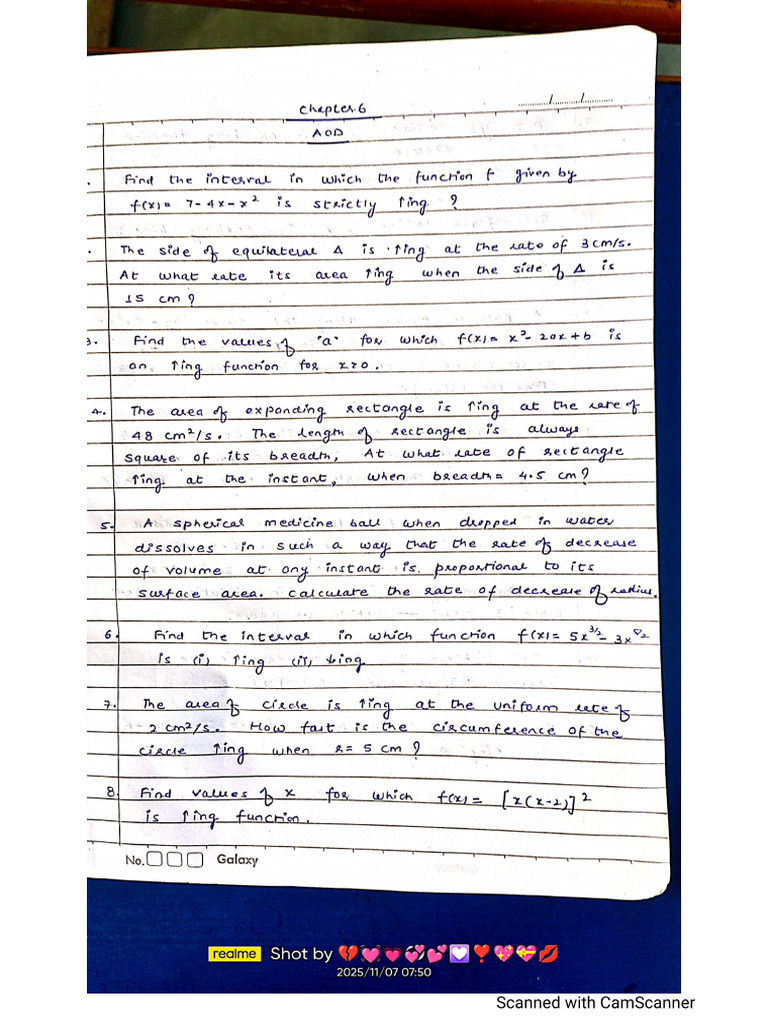 Chapter.6
....../....../......
AOD
. Find the interval in which the function f given by
f(x) = 7-4x-x² is strictly ↑ing ?
. The side of equilateral Δ is ↑ing at the rate of 3 cm/s.
At what rate its area ↑ing when the side of Δ is
15 cm ?
3. Find the values of 'a' for which f(x) = x²- 2ax + b is
an ↑ing function for x>0.
4. The area of expanding rectangle is ↑ing at the rate of
48 cm²/s. The length of rectangle is always
square of its breadth, At what rate of rectangle
↑ing at the instant, when breadth = 4.5 cm?
5. A spherical medicine ball when dropped in water
dissolves in such a way that the rate of decrease
of volume at any instant is proportional to its
surface area. calculate the rate of decrease of radius.
6. Find the interval in which function f(x) = 5x^3/2 - 3x^5/2
is (i) ↑ing (ii) ↓ing
7. The area of circle is ↑ing at the uniform rate of
2 cm²/s. How fast is the circumference of the
circle ↑ing when r = 5 cm ?
8. Find values of x for which f(x) = [x(x-2)]²
is ↑ing function.
No. Galaxy
realme Shot by 💔💓💗💞💕💟❣💖💝💋
2025/11/07 07:50
Scanned with CamScanner